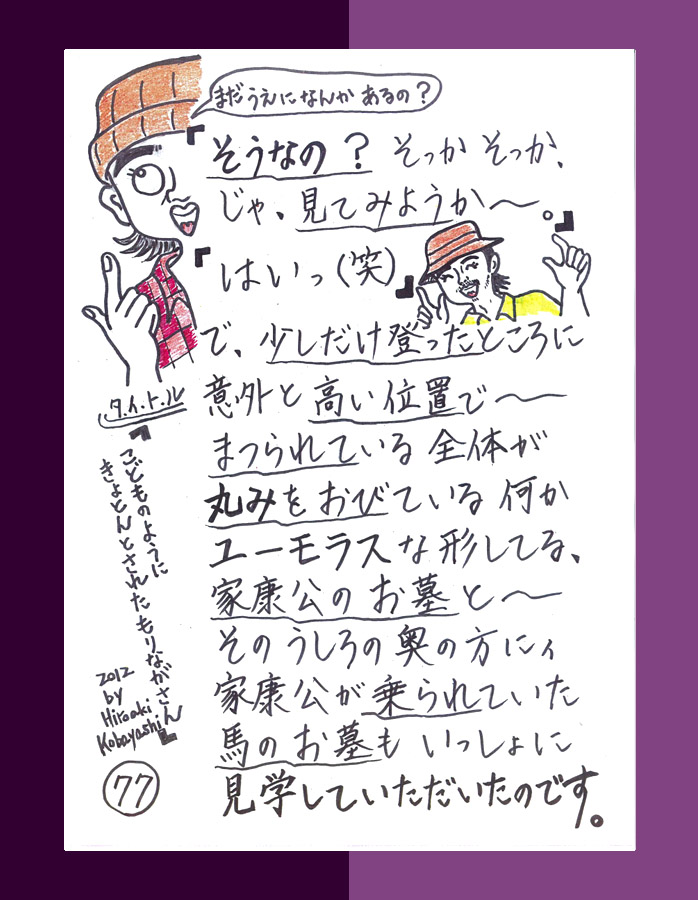 まだうえになんかあるの？
『そうなの？そっかそっか、
じゃ、見てみようか〜。』
『はいっ(笑)』
で、少しだけ登ったところに
意外と高い位置で〜
まつられている全体が
丸みをおびている何か
ユーモラスな形してる、
家康公のお墓と〜
そのうしろの奥の方にィ
家康公が乗られていた
馬のお墓もいっしょに
見学していただいたのです。
タ.イ.ト.ル
『こどものように
きょとんとされたもりながさん』
2012
by
Hiroaki
Kobayashi
77